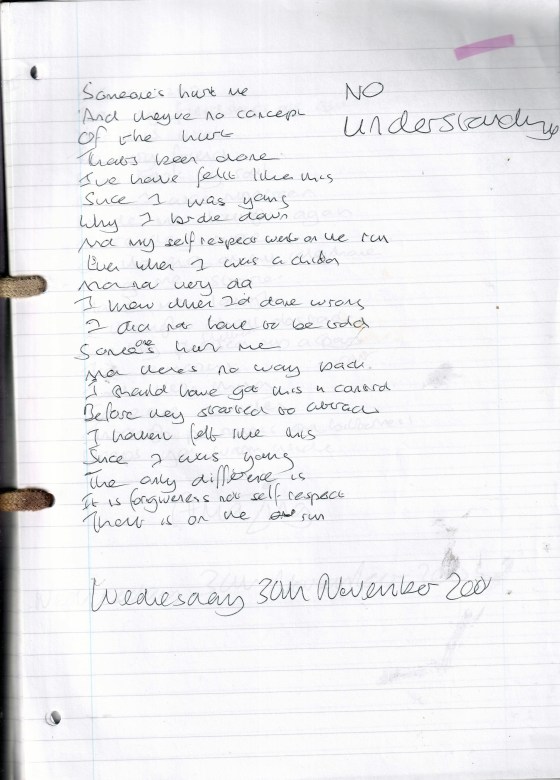 NO
Understanding
Someone's hurt me
And theyve no concept
Of the hurt
Thats been done
I've have felt like this
Since I was young
Why I broke down
And my self respect went on the run
Even when I was a child
And not very old
I knew when I'd done wrong
I did not have to be told
Someone's hurt me
And theres no way back
I should have got this in control
Before they started to attack
I haven't felt like this
Since I was young
The only difference is
It is forgiveness not self respect
That is on the run
Wednesday 30th November